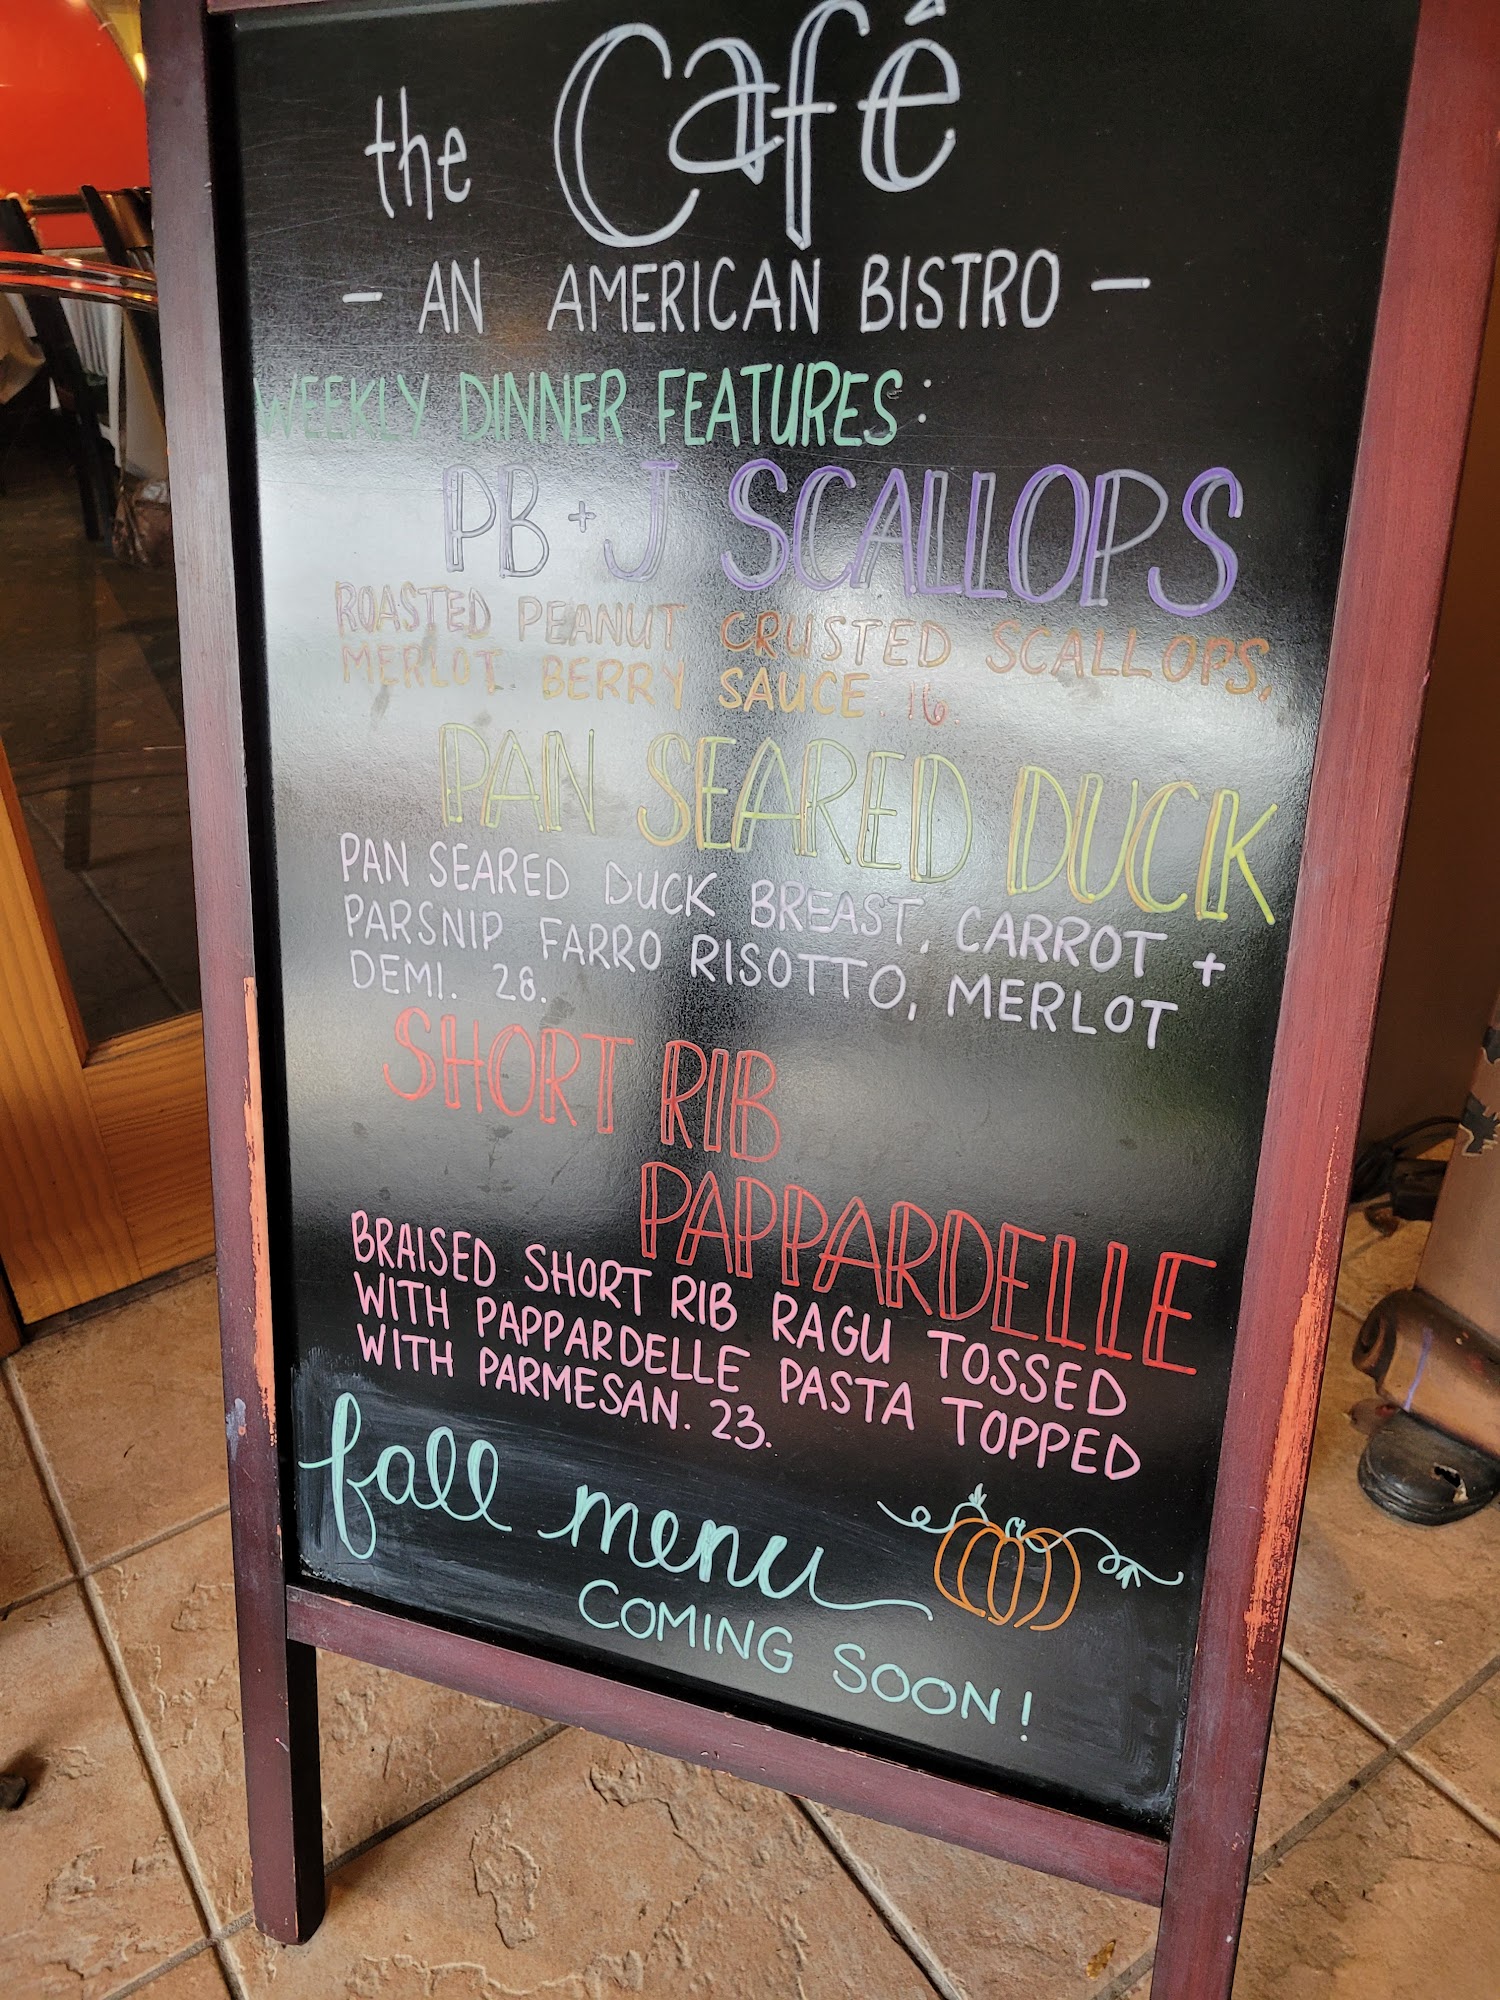 the Café
- AN AMERICAN BISTRO -
WEEKLY DINNER FEATURES:
PB + J SCALLOPS
ROASTED PEANUT CRUSTED SCALLOPS,
MERLOT BERRY SAUCE. 16.
PAN SEARED DUCK
PAN SEARED DUCK BREAST, CARROT +
PARSNIP FARRO RISOTTO, MERLOT
DEMI. 28.
SHORT RIB
PAPPARDELLE
BRAISED SHORT RIB RAGU TOSSED
WITH PAPPARDELLE PASTA TOPPED
WITH PARMESAN. 23.
fall menu
COMING SOON!